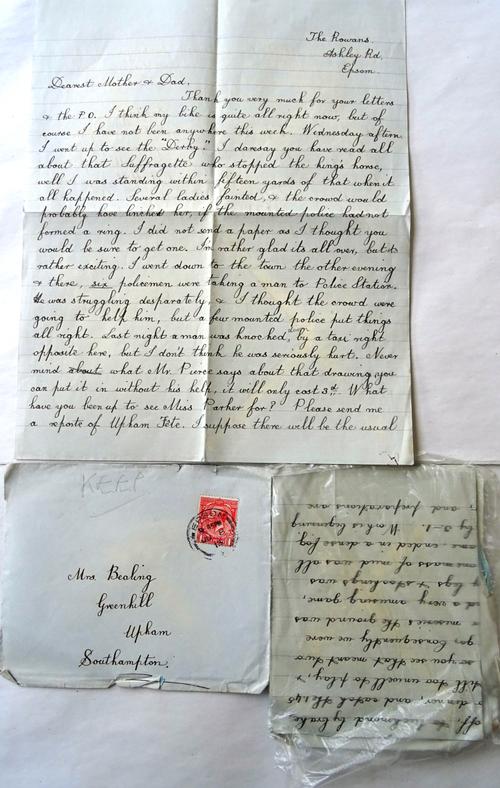 The Rowans.
Ashley Rd.
Epsom.
Dearest Mother & Dad,
Thank you very much for your letters
& the P.O. I think my bike is quite all right now, but of
course I have not been anywhere this week. Wednesday aftern.
I went up to see the "Derby." I daresay you have read all
about that Suffragette who stopped the king's horse,
well I was standing within fifteen yards of that when it
all happened. Several ladies fainted, & the crowd would
probably have lynched her, if the mounted police had not
formed a ring. I did not send a paper as I thought you
would be sure to get one. I'm rather glad its all over, but its
rather exciting. I went down to the town the other evening
& there, six policemen were taking a man to Police Station.
He was struggling desparately. & I thought the crowd were
going to help him, but a few mounted police put things
all right. Last night a man was knocked, by a taxi right
opposite here, but I don't think he was seriously hurt. Never
mind about what Mr. Pierce says about that drawing, you
can put it in without his help, it will only cost 3d. What
have you been up to see Miss Parker for? Please send me
a reporte of Upham Fête. I suppose there will be the usual
KEEP
EPSOM
Mrs. Bealing
Greenhill
Upham
Southampton.
off, to Richmond by brake
dinner, and catch the 1.45
till too unwell to play, &
so you see that meant two
Consequently we were
miseries the ground was
a very amusing game,
legs & stockings was
one mass of mud was all
ended in a dense fog
by 3-1. Work is beginning
and preparations are